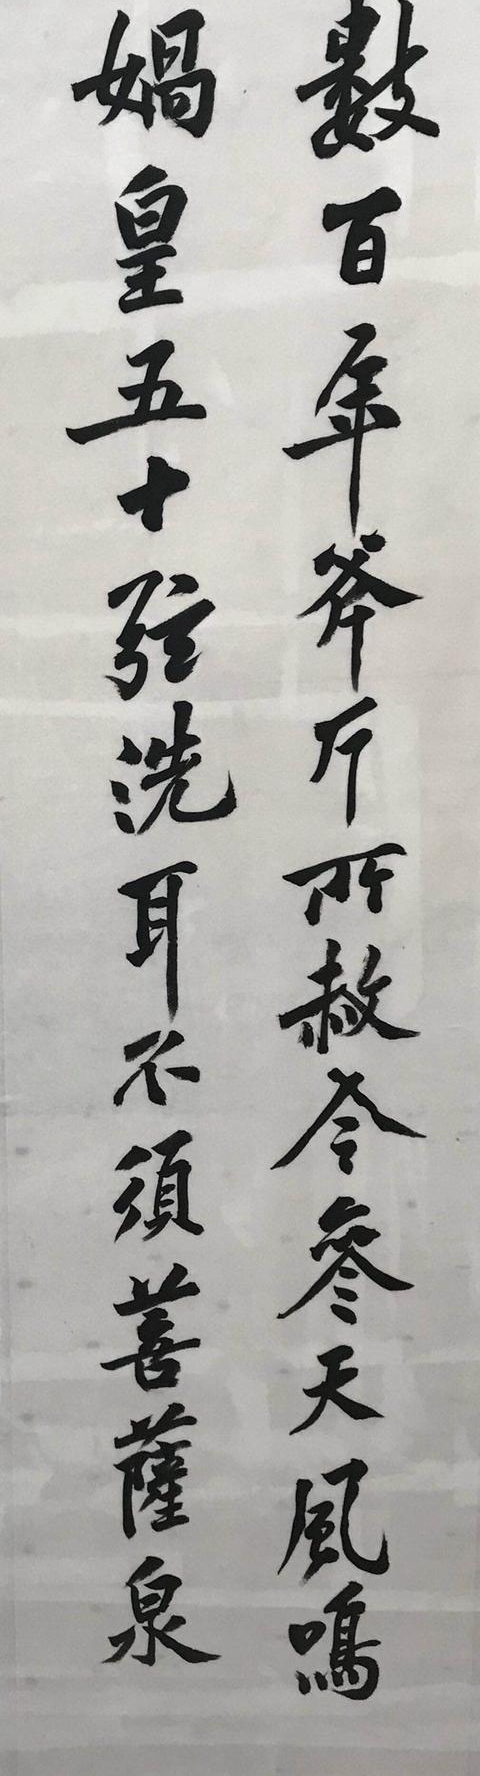 數百年斧斤所赦令參天風鳴
媧皇五十弦洗耳不須菩薩泉